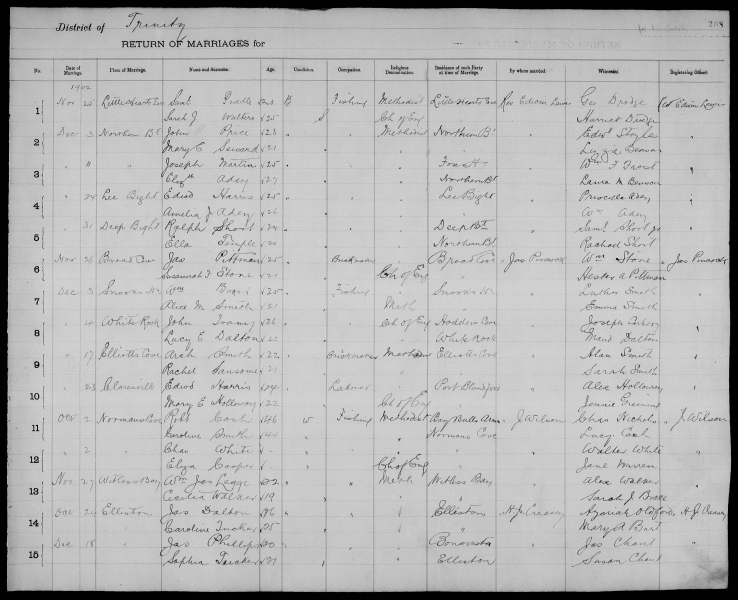 District of Trinity 208
RETURN OF MARRIAGES for
No. Date of Marriage. Place of Marriage. Name and Surname. Age. Condition Occupation. Religious Denomination. Residence of each Party at time of Marriage. By whom married. Witnesses. Registering Officer.
1902
1 Nov 25 Little Hearts Ease Saml 23 B Fishing Methodist Little Hearts Ease Rev Edwin Geo Drodge Edwin
Sarah J Walters 25 S Ch of Eng Harriet Drodge
2 Dec 3 Northern Bt John Price 23 " Methodist Northern Bt " Edwd Styles
Mary E Seward 21 " Benson
3 " " Joseph Martin 25 " Fox Hr " Wm F Frost
Elizth Adey 27 Northern Bt Laura M Benson
4 " 24 Lee Bight Edwd Harris 25 " Lee Bight " Priscilla Adey
Amelia J Adey 26 " Wm Adey
5 " 31 Deep Bight Ralph Short 24 " Deep Bt " Saml Short Jr
Ella Temple 20 Northern Bt Rachael Short
6 Nov 26 Broad Cove Jas Pittman 25 " " Broad Cove Jas Pincock Wm Stone " Jas Pincock
Susannah J Stone 21 Ch of Eng " Hester A Pittman
7 Dec 3 Snooks Hr Wm Baker 25 " Fishing " Snooks Hr " Luther Smith
Alice M Smith 21 Meth " Emma Smith
8 " 14 White Rock John 26 " Ch of Eng Hodders Cove " Joseph
Lucy E Dalton 22 White Rock Maud Dalton
9 " 17 Elliotts Cove Arch Smith 22 " Methodist Elliotts Cove " Alan Smith
Rachel Sansome 21 " Sarah Smith
10 " 23 Clarenville Edwd Harris 24 " Labour " Port Blandford " Alex Holloway
Mary E Holloway 22 Ch of Eng Jennie
11 Oct 2 Normans Cove Robt Cash 46 W Fishing Methodist Bay Bulls Arm J Wilson Chas Nichols " J Wilson
Caroline Smith 44 " Normans Cove Lucy Cash
12 " 2 " Chas White - " " Walter White
Eliza Cooper - Ch of Eng " Jane
13 Nov 27 Witless Bay Wm Jas Legge 22 " Meth Witless Bay " Alex Walker
Cecilia Walker 19 " Sarah J
14 Oct 24 Elliston Jas Dalton 26 " " Elliston H J Creasey Azariah Oldford H J Creasey
Caroline Tucker 25 " Mary A Burt
15 Dec 18 " Jas Phillips 30 " " Bonavista " Jas Chant
Sophia 31 " Elliston Susan Chant